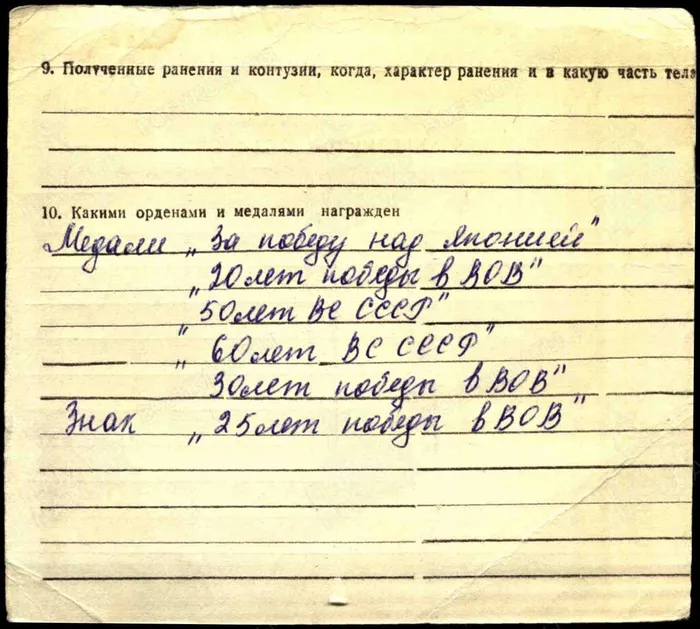 9. Полученные ранения и контузии, когда, характер ранения и в какую часть тела
10. Какими орденами и медалями награжден
Медали „За победу над Японией"
„20 лет победы в ВОВ"
„50 лет ВС СССР"
„60 лет ВС СССР"
30 лет победы в ВОВ"
Знак „25 лет победы в ВОВ"